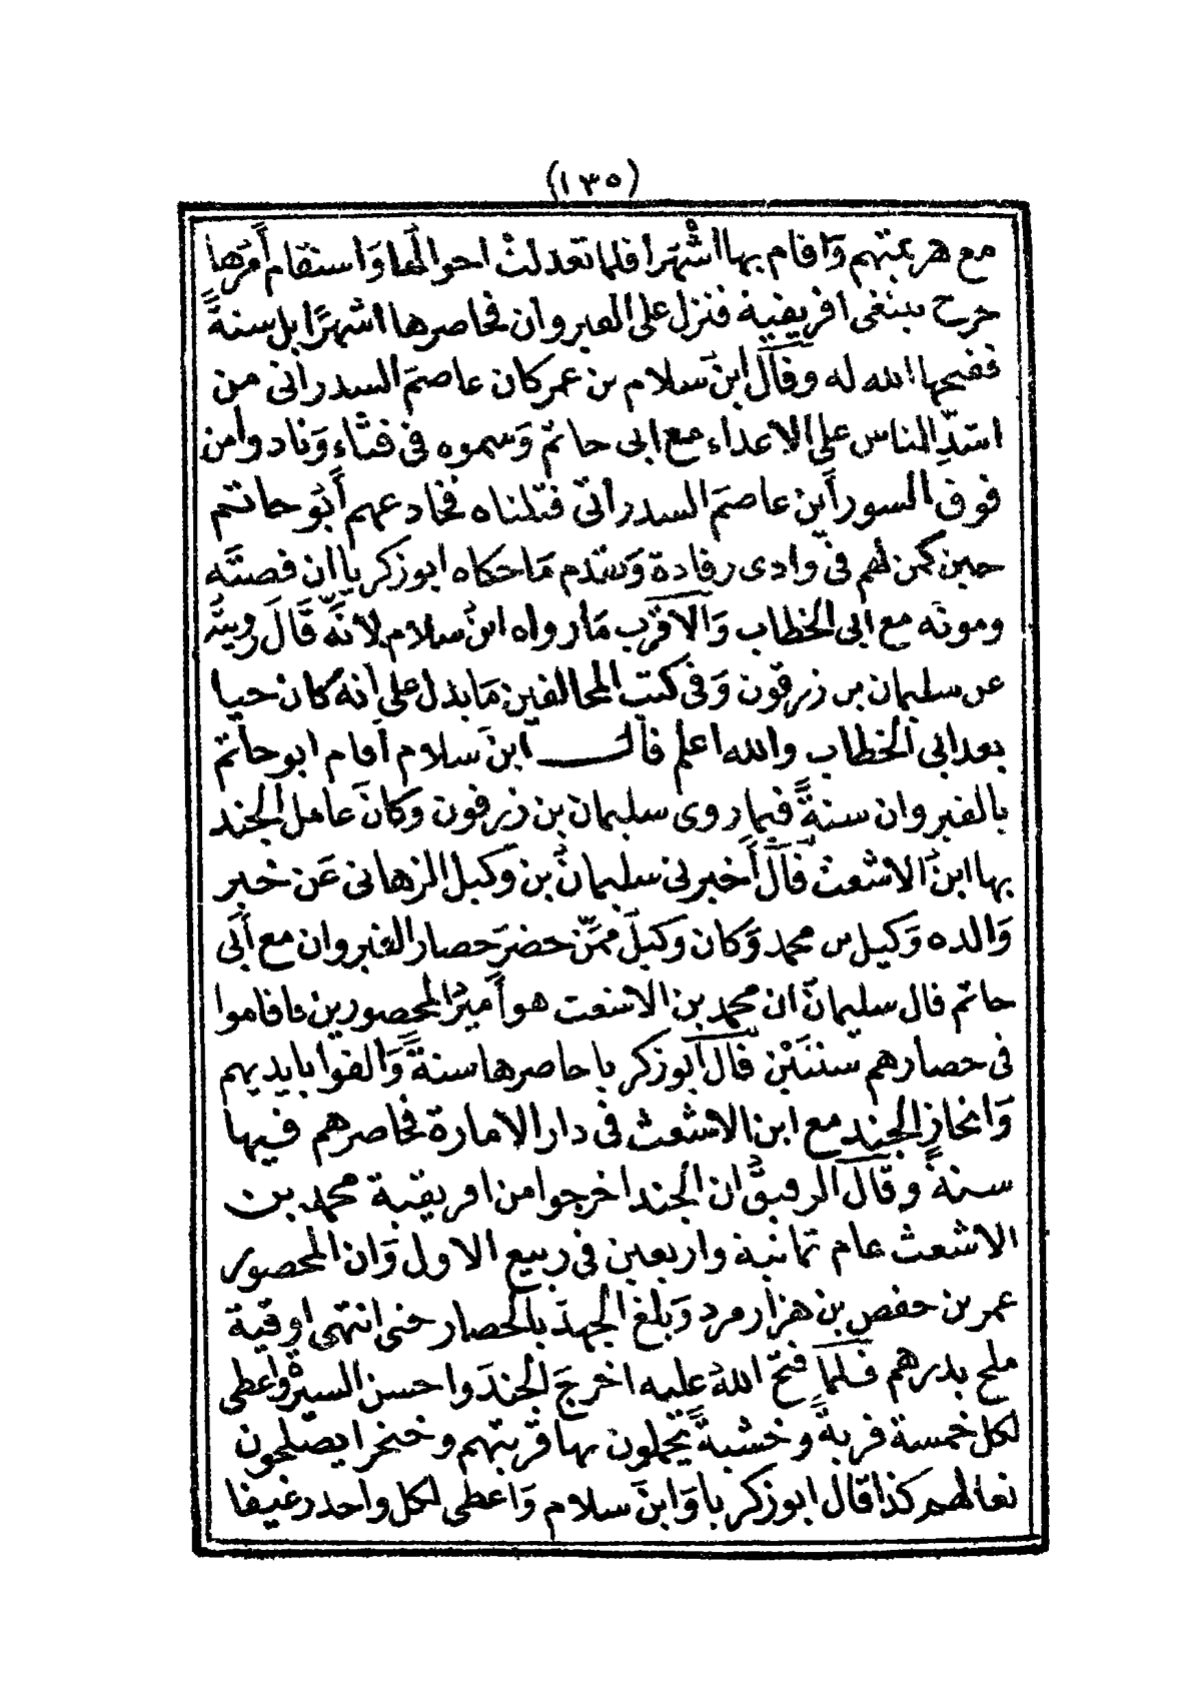 (١٣٥)
مع هزيمتهم وَاقام بها اشْهَرا فلما تعدلتْ احوالها وَاستقام أَمْرُها
خرج يبتغى افريقية فنزل على القيروان فحاصرها اشهرًا بل سنةً
ففتحها الله له وقال ابنُ سلام بن عمر كان عاصمَ السدرانى من
اشدِّ الناس على الاعداء مع ابى حاتم وَسموه فى قثاء وَنادوا من
فوق السور أَبن عاصمَ السدراتى قتلناه فخادعهم أَبُو حاتم
حين كمن لهم فى وادى رقادة وَتقدم مَا حكاه ابو زكرياا ان قصتَه
وموته مع ابى الخطاب وَالاقرب مَا رواه ابنُ سلام لأنَّه قَالَ رويتَه
عن سليمان بن زرقون وَفى كتب المخالفين مَا يدل على أنه كان حيا
بعد ابى الخطاب والله اعلم قال ابنَ سلام أقام ابو حاتم
بالقيروان سنةً فيما روى سليمان بن زرقون وَكانَ عامل الجند
بها ابنُ الاشعث قَالَ أَخبرنى سليمانُ بن وَكيل الزهانى عَن خبر
وَالده وَكيل بن محمد وَكان وَكيلَ ممَّن حضرَ حصار القيروان مع أَبى
حاتم قال سليمانَ ان محمد بن الاشعث هو أَميرُ المحصورين فاقاموا
فى حصارهم سنتَيْن قَالَ أبو زكرياء حاصرها سنةً وَالقوا بايديهم
وَانحاز الجند مع ابن الاشعث فى دار الامارة فحاصرهم فيها
سنة وقال الرقيقُ ان الجند اخرجوا من افريقية محمد بن
الاشعث عام ثمانية واربعين فى ربيع الاول وَان المحصور
عمر بن حفص بن هزارمرد وَبلغ الجهدَ بالحصار حتى انتهى اوقية
ملح بدرهم فلما فتح اللهُ عليه اخرجَ الجندَ واحسن السيرةَ واعطى
لكل خمسة قربةً وخشبةً يحملون بها قربتهم وخنجرا يصلحون
نعالهم كذا قال ابو زكريا وَابنَ سلام وَأعطى لكل واحد رغيفا